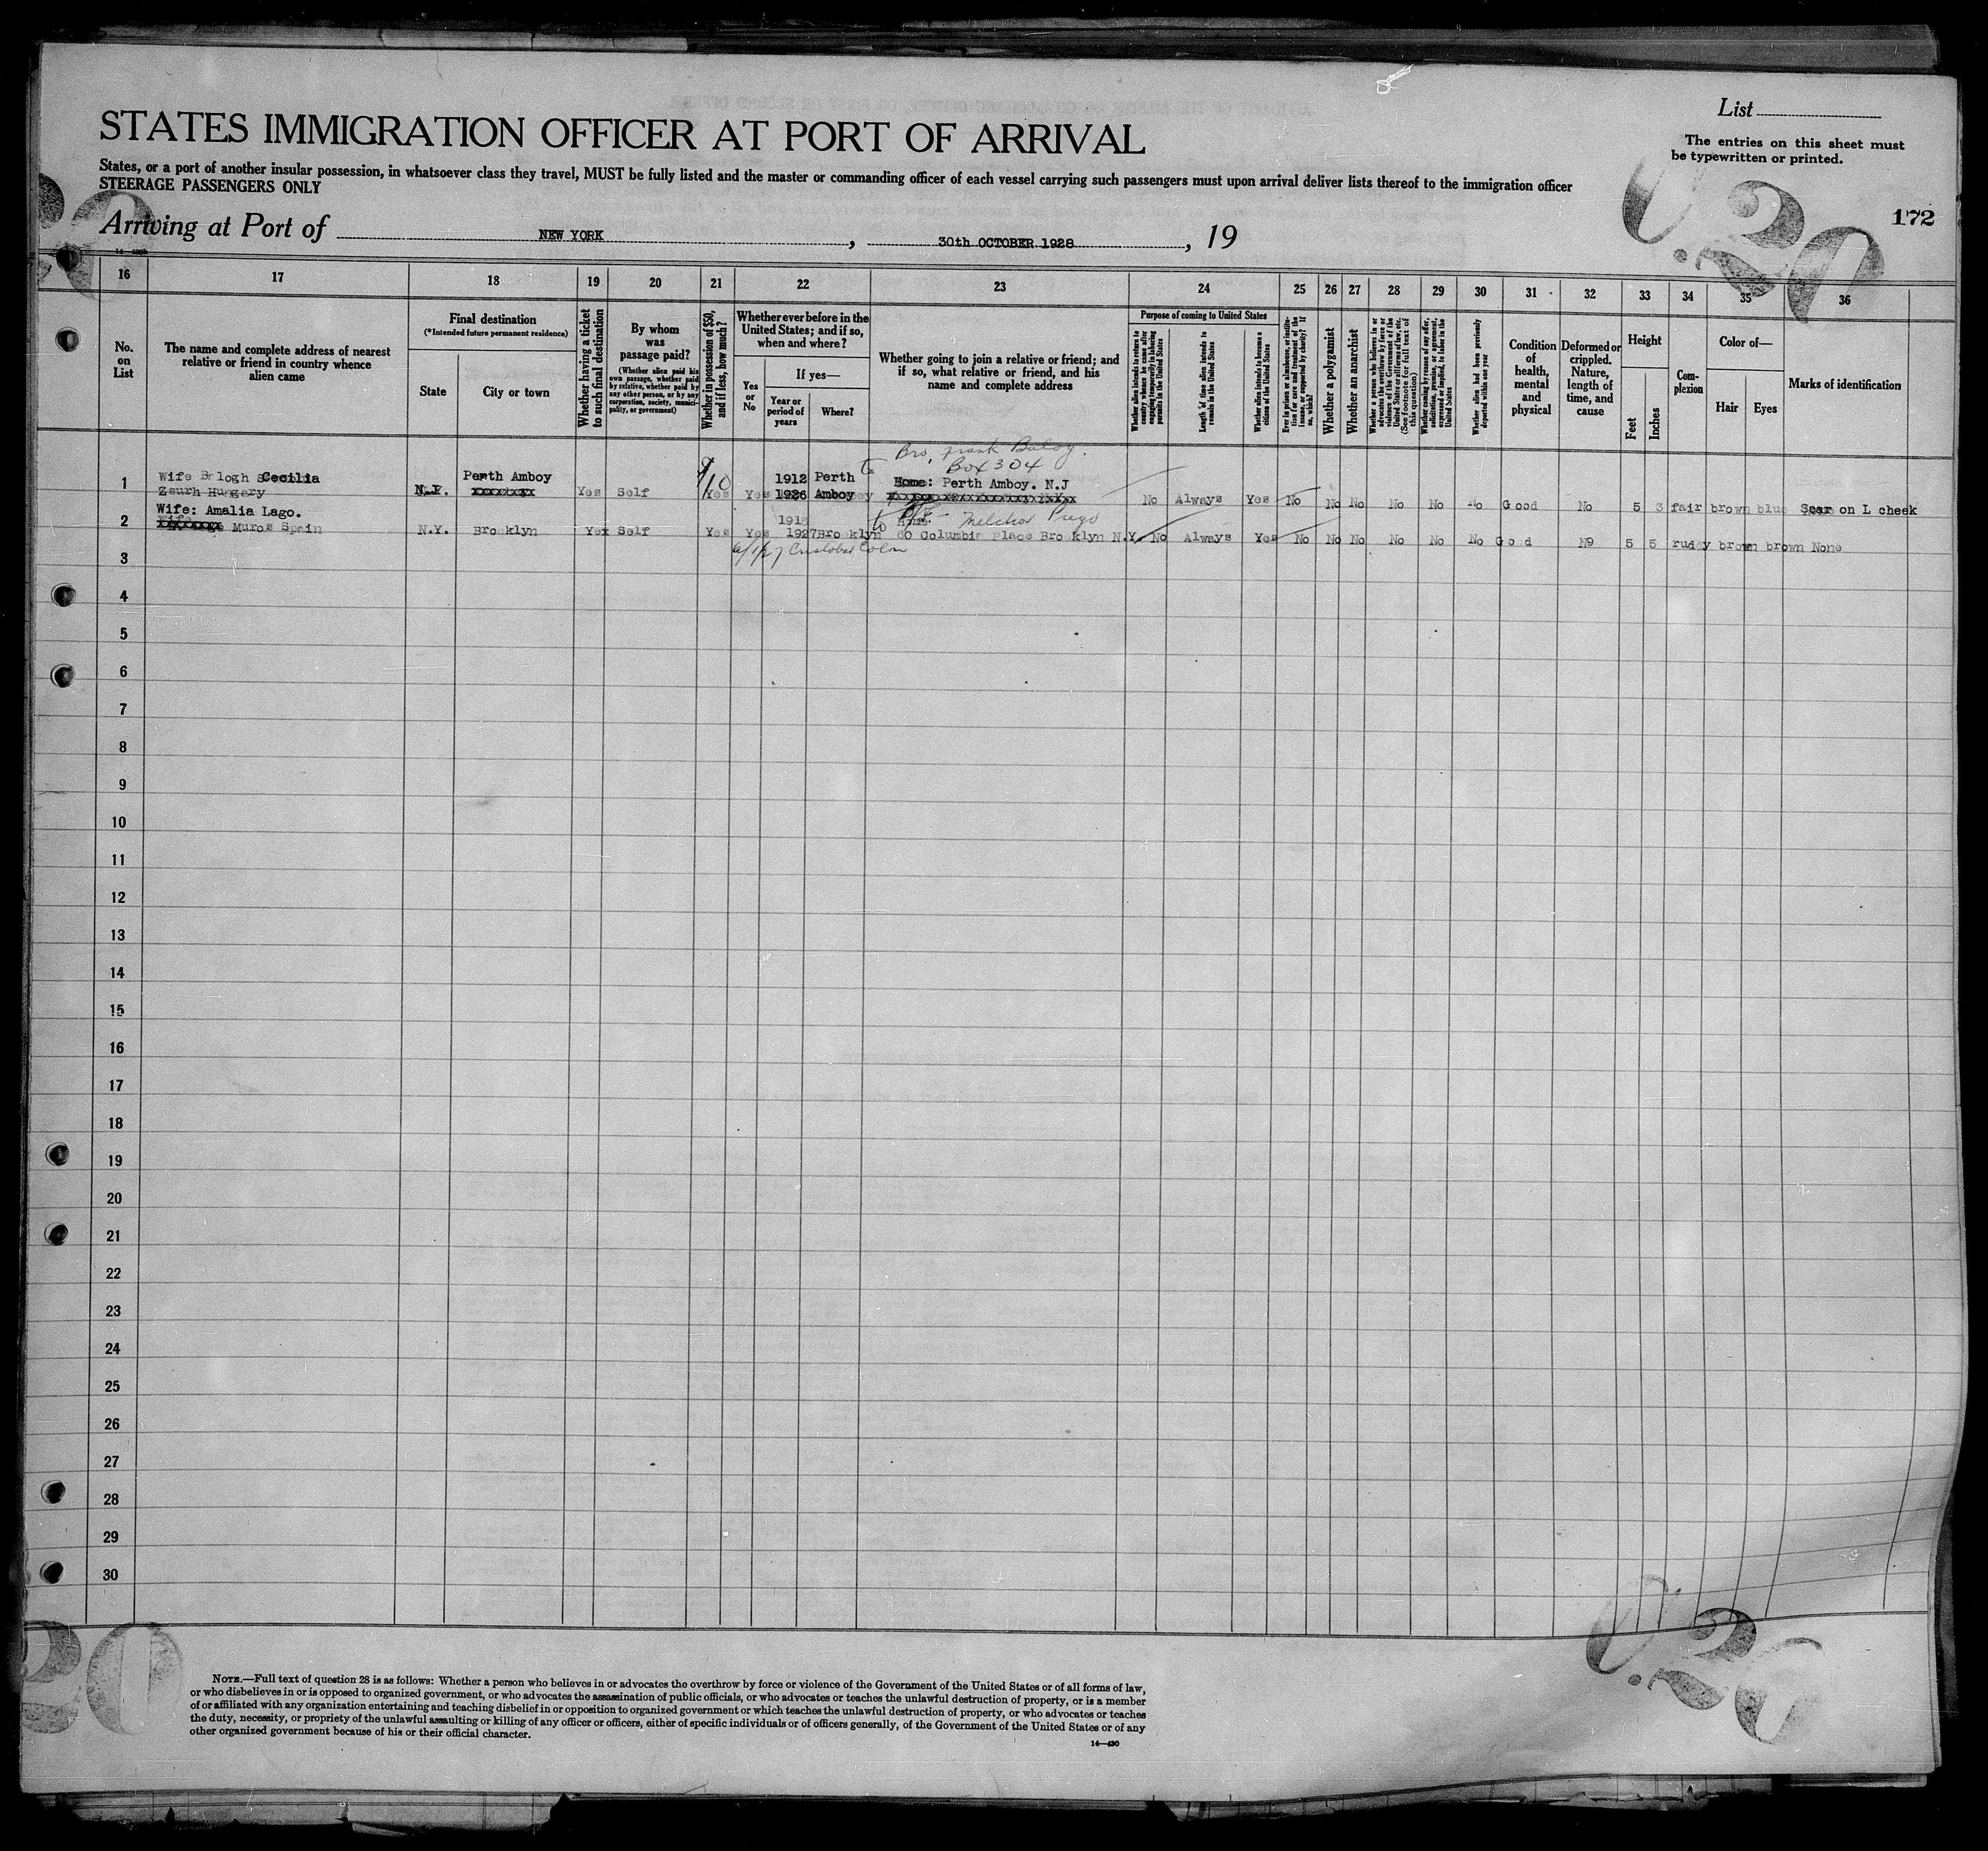 List
STATES IMMIGRATION OFFICER AT PORT OF ARRIVAL
The entries on this sheet must
be typewritten or printed.
States, or a port of another insular possession, in whatsoever class they travel, MUST be fully listed and the master or commanding officer of each vessel carrying such passengers must upon arrival deliver lists thereof to the immigration officer
STEERAGE PASSENGERS ONLY
172
Arriving at Port of NEW YORK, 30th OCTOBER 1928, 19
16 17 18 19 20 21 22 23 24 25 26 27 28 29 30 31 32 33 34 35 36
No.
on
List
The name and complete address of nearest
relative or friend in country whence
alien came
Final destination
(*Intended future permanent residence)
State
City or town
Whether having a ticket
to such final destination
By whom
was
passage paid?
(Whether alien paid his
own passage, whether paid
by relative, whether paid by
any other person, or by any
corporation, society, munici-
pality, or government)
Whether in possession of $50,
and if less, how much?
Whether ever before in the
United States; and if so,
when and where?
Yes
or
No
If yes—
Year or
period of
years
Where?
Whether going to join a relative or friend; and
if so, what relative or friend, and his
name and complete address
Purpose of coming to United States
Whether alien intends to return to
country whence he came after
engaging temporarily in laboring
pursuits in the United States
Length of time alien intends to
remain in the United States
Whether alien intends to become a
citizen of the United States
Ever in prison or almshouse, or institu-
tion for care and treatment of the
insane, or supported by charity? If
so, which?
Whether a polygamist
Whether an anarchist
Whether a person who believes in or
advocates the overthrow by force or
violence of the Government of the
United States or all forms of law, etc.
(See footnote for full text of
this question)
Whether coming by reason of any offer,
solicitation, promise, or agreement,
expressed or implied, to labor in the
United States
Whether alien had been previously
deported within one year
Condition
of
health,
mental
and
physical
Deformed or
crippled.
Nature,
length of
time, and
cause
Height
Feet
Inches
Com-
plexion
Color of—
Hair
Eyes
Marks of identification
Bro. Frank Balog.
Box 304
1 Wife Balogh Cecilia Perth Amboy 1912 Perth Home: Perth Amboy. N.J
Zsurh Hungary N.Y. Yes Self Yes Yes 1926 Amboy No Always Yes No No No No No No Good No 5 3 fair brown blue Scar on L cheek
Wife: Amalia Lago.
2 Muros Spain N.Y. Brooklyn Yes Self Yes Yes 1927 Brooklyn 60 Columbia Place Brooklyn N.Y. No Always Yes No No No No No No Good No 5 5 ruddy brown brown None
Melchor Prego
6/1/27 Cristobal Colon
3
4
5
6
7
8
9
10
11
12
13
14
15
16
17
18
19
20
21
22
23
24
25
26
27
28
29
30
NOTE.—Full text of question 28 is as follows: Whether a person who believes in or advocates the overthrow by force or violence of the Government of the United States or of all forms of law,
or who disbelieves in or is opposed to organized government, or who advocates the assassination of public officials, or who advocates or teaches the unlawful destruction of property, or is a member
of or affiliated with any organization entertaining and teaching disbelief in or opposition to organized government or which teaches the unlawful destruction of property, or who advocates or teaches
the duty, necessity, or propriety of the unlawful assaulting or killing of any officer or officers, either of specific individuals or of officers generally, of the Government of the United States or of any
other organized government because of his or their official character.
14—430